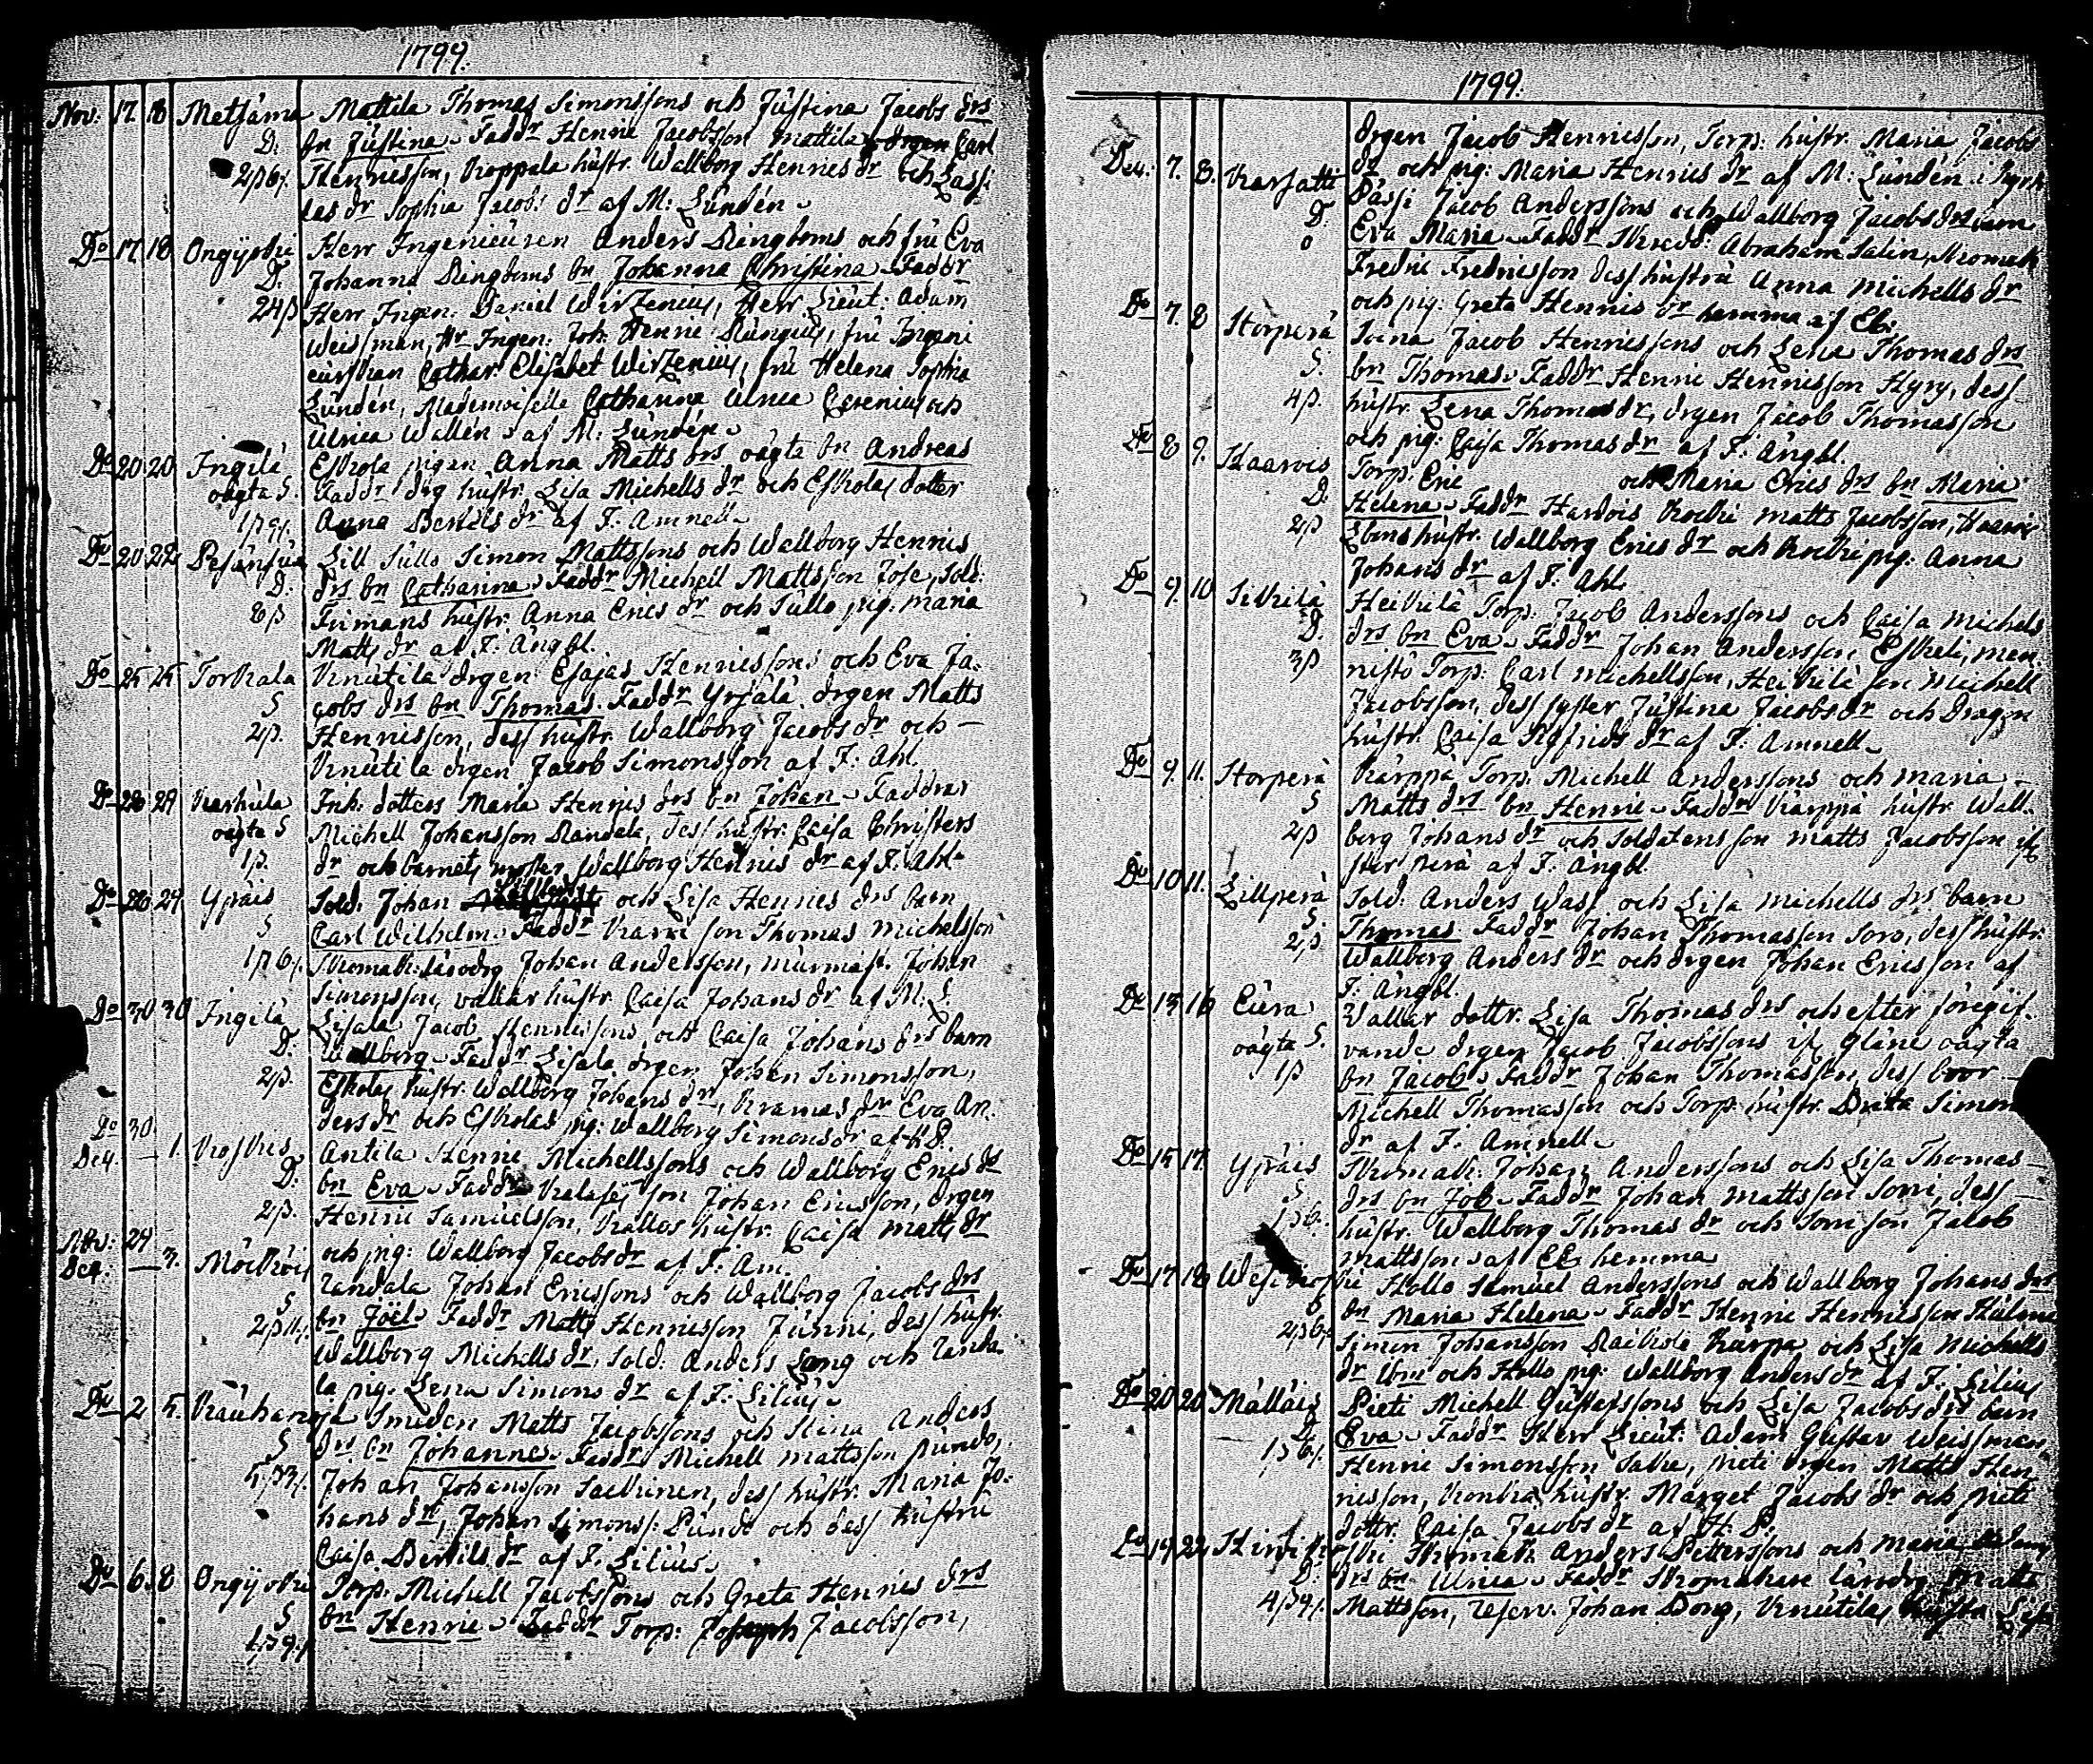 1799.
Nov: 17. 18 Metsäma Mattila Thomas Simonssons och Justina Jacobs drs
D. bn Justina. Faddr Henric Jacobsson Mattila, Carl
Henricsson, Krappala hustr. Wallborg Henrics dr och Lassi
las dr Sophia Jacobs dr af M: Lundén
Do 17. 18 Ongijoki Herr Ingenieuren Anders Ringboms och fru Eva
D. Johanna Ringboms bn Johanna Christina. Faddr
24β Herr Ingen: Daniel Wirzenius, Herr Lieut: Adam
Weissman, Hr Ingen: Joh: Henric Rungius, fru Ingeni
eurskan Cathar: Elisabet Wirzenius, fru Helena Sophia
Lundén, Mademoiselle Catharina Ulrica Cerenius och
Ulrica Wallen af M: Lundén
Do 20 20 Ingilä Eskola pigan Anna Matts drs oägta bn Andreas
oägta S. Faddr drg hustr. Lisa Michells dr och Eskolas dotter
Anna Bertils dr af J: Amnell
Do 20 22 Pesänsuu Lill Sullo Simon Mattssons och Wallborg Henrics
D. drs bn Catharina. Faddr Michell Mattsson Jose, Sold:
8β hustr. Anna Erics dr och Sullo pig: Maria
Matts dr af J: Ängbl.
Do 25 25 Torkala Knutila drgen Esajas Henricssons och Eva Ja-
S cobs drs bn Thomas. Faddr Yrjälä drgen Matts
2β. Henricsson, dess hustr. Wallborg Jacobs dr och
Knutila drgen Jacob Simonsson af J: Ahl.
Do 28 29 Karhula Inh: dotters Maria Henrics drs bn Johan. Faddrar
oägta S Michell Johansson Randala, dess hustr: Caisa Christers
1β. dr och barnets moster Wallborg Henrics dr af J: Ahl
Do 28 29 Ypäis Sold: Johan och Lisa Henrics drs barn
S Carl Wilhelm. Faddr son Thomas Michelsson
Skomak: lärodrg Johan Andersson, murmäst. Johan
Simonsson, vallar hustr. Caisa Johans dr af M: L.
Do 30 30 Ingilä Lisala Jacob Henricssons och Caisa Johans drs barn
D. Wallborg. Faddr Lisala drgen Johan Simonsson,
2β. Eskolas hustr. Wallborg Johans dr, Kramas dr Eva An-
ders dr och Eskolas pig: Wallborg Simons dr af H P.
Do 30
Dec. 1. Koskis Antila Henric Michellssons och Wallborg Erics drs
D. bn Eva. Faddr son Johan Ericsson, drgen
2β. Henric Samuelsson, Kallos hustr. Caisa Matts dr
och pig: Wallborg Jacobs dr af J: Am.
Nov: 29
Dec. 3. Randala Johan Ericssons och Wallborg Jacobs drs
S bn Joël. Faddr Matts Henricsson Junni, dess hustr.
Wallborg Michells dr, Sold: Anders Lång och Randa-
la pig: Lena Simons dr af J: Lilius
Do 2 5. Smeden Matts Jacobssons och Stina Anders
S drs bn Johannes. Faddr Michell Mattsson Pundo,
Johan Johansson Saekinen, dess hustr. Maria Jo-
hans dr, Johan Simonss: Pundo och dess hustru
Caisa Bertils dr af J. Lilius
Do 6. 8 Ongijoki Torp: Michell Jacobssons och Greta Henrics drs
S bn Henric. Faddr Torp: Joseph Jacobsson,
1799.
drgen Jacob Henricsson, Torp: hustr. Maria Jacobs
dr och pig: Maria Henrics dr af M: Lundén i Kyrk
Dec: 7. 8. Karsatti Passi Jacob Anderssons och Wallborg Jacobs drs barn
D. Eva Maria. Faddr Skredd: Abraham Salin, Kromak
0 Fredric Fredricsson dess hustru Anna Michells dr
och pig: Greta Henrics dr hemma af Eb:
Do 7. 8 Storperä Soina Jacob Henricssons och Lena Thomas drs
S. bn Thomas. Faddr Henric Henricsson Hyry, dess
4β. hustr. Lena Thomas dr, drgen Jacob Thomasson
och pig: Caisa Thomas dr af J: Ängbl.
Do 8 9. Haarois Torp: Eric och Maria Erics drs bn Maria
D. Helena. Faddr Haarois Kocki Matts Jacobsson, Haarois
2β hustr. Wallborg Erics dr och Kocki pig: Anna
Johans dr af J: Ahl
Do 9. 10 Sikilä Heikilä Torp: Jacob Anderssons och Caisa Michels
D. drs bn Eva. Faddr Johan Andersson Eskeli, Man
3β nistö Torp: Carl Michellsson, Heikilä son Michell
Jacobsson, dess syster Justina Jacobs dr och Dragon
hustr. Caisa Sigfrids dr af J: Amnell
Do 9. 11. Storperä Kärppä Torp: Michell Anderssons och Maria
S Matts drs bn Henric. Faddr Kärppä hustr. Wall-
2β borg Johans dr och Soldatens son Matts Jacobsson
Storperä af J: Ängbl.
Do 10 11. Lillperä Sold: Anders Wass och Lisa Michells drs barn
S. Thomas. Faddr Johan Thomasson Sorv, dess hustr.
2β Wallborg Anders dr och drgen Johan Ericsson af
J: Ängbl.
Do 15 16 Cura Vallar dottr. Lisa Thomas drs och efter föregif-
oägta S. vande drgen Jacob Jacobssons oägta
1β bn Jacob. Faddr Johan Thomasson, dess bror
Michell Thomasson och Torp: hustr. Brita Simons
dr af J: Amnell
Do 15 17. Ypäis Skomak: Johan Anderssons och Lisa Thomas
S drs bn Job. Faddr Johan Mattsson Sorri, dess
hustr. Wallborg Thomas dr och Sorri son Jacob
Mattsson af EE hemma
Do 17 18 Hollo Samuel Anderssons och Wallborg Johans drs
bn Maria Helena. Faddr Henric Henricsson
Simon Johansson Raikiola Kärpä och Lisa Michells
dr och Hollo pig: Wallborg Anders dr af J: Lilius
Do 20 20 Mälläis Pieti Michell Gustafssons och Lisa Jacobs drs barn
D. Eva. Faddr Herr Lieut: Adam Gustav Weissman
Henric Simonsson Talvi, Pieti drgen Matts Hen
ricsson, Kontra hustr. Margret Jacobs dr och Pieti
dottr. Caisa Jacobs dr af H. P.
Do 19 22 Skomak: Anders Petterssons och Maria
D. drs bn Ulrica. Faddr Skomakare lärodrg Matts
Mattsson, Reserv: Johan Dong, Knutilas hustru Lisa